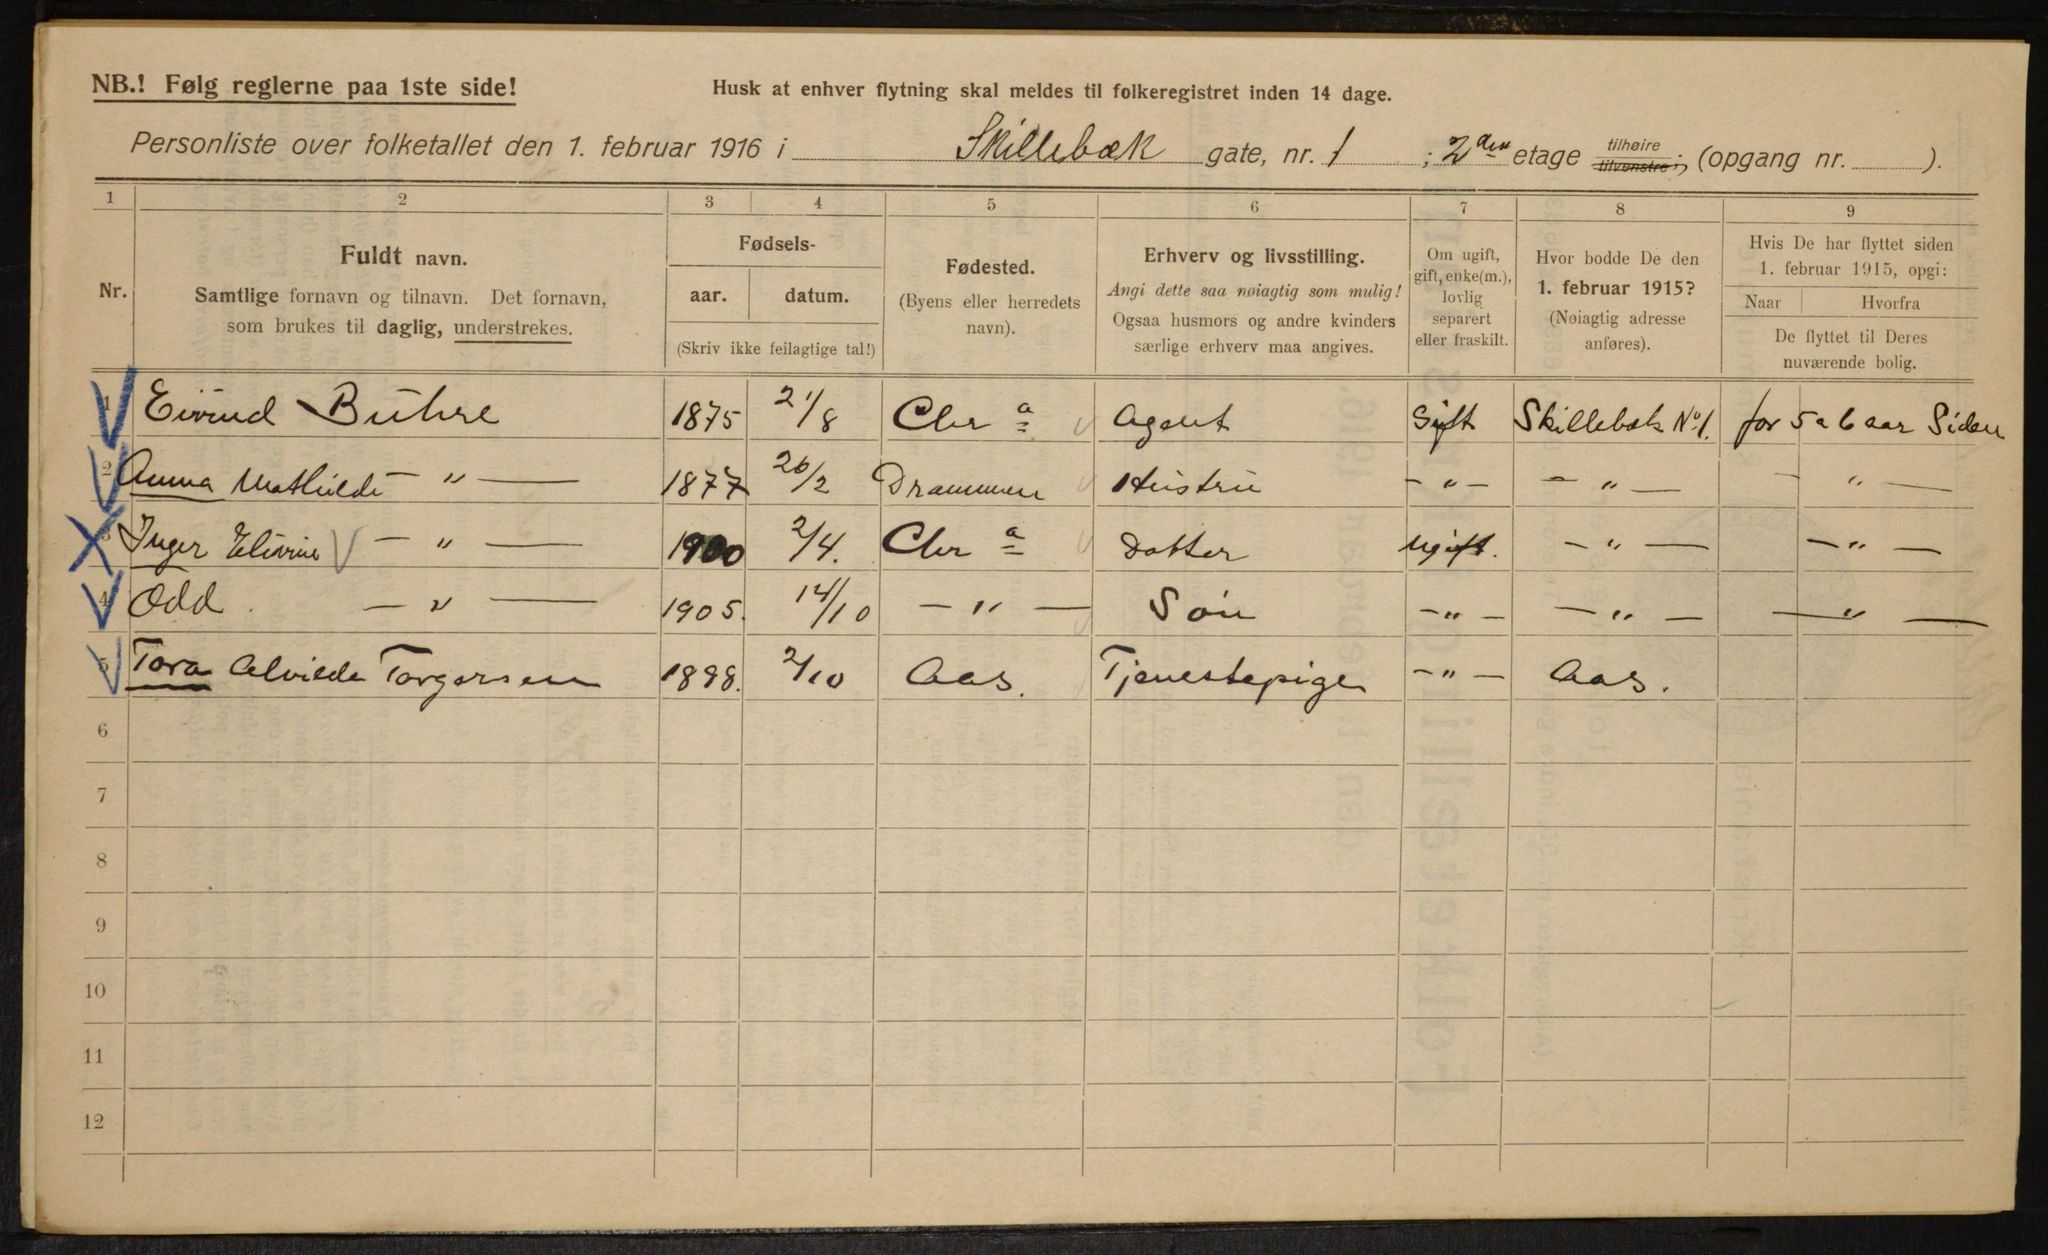 NB.! Følg reglerne paa 1ste side!
Husk at enhver flytning skal meldes til folkeregistret inden 14 dage.
Personliste over folketallet den 1. februar 1916 i Skillebæk gate, nr. 1 ; 2den etage tilhøire tilvenstre; (opgang nr. ).
1 2 3 4 5 6 7 8 9
Nr.
Fuldt navn.
Samtlige fornavn og tilnavn. Det fornavn,
som brukes til daglig, understrekes.
Fødsels-
aar. datum.
(Skriv ikke feilagtige tal!)
Fødested.
(Byens eller herredets
navn).
Erhverv og livsstilling.
Angi dette saa nøiagtig som mulig!
Ogsaa husmors og andre kvinders
særlige erhverv maa angives.
Om ugift,
gift, enke(m.),
lovlig
separert
eller fraskilt.
Hvor bodde De den
1. februar 1915?
(Nøiagtig adresse
anføres).
Hvis De har flyttet siden
1. februar 1915, opgi:
Naar Hvorfra
De flyttet til Deres
nuværende bolig.
1 Eivind Buhre 1875 21/8 Chr a Agent Gift Skillebæk No 1. for 5 a 6 aar Siden
2 Anna Mathilde — " — 1877 26/2 Drammen Hustru - " - - " — - " —
3 Inger — " — 1900 2/4. Chr a Datter ugift. - " — - " —
4 Odd — " — 1905. 14/10 — " — Søn - " - - " - — " —
5 Tora Alvilde Torgersen 1898. 2/10 Aas. Tjenestepige - " - Aas.
6
7
8
9
10
11
12